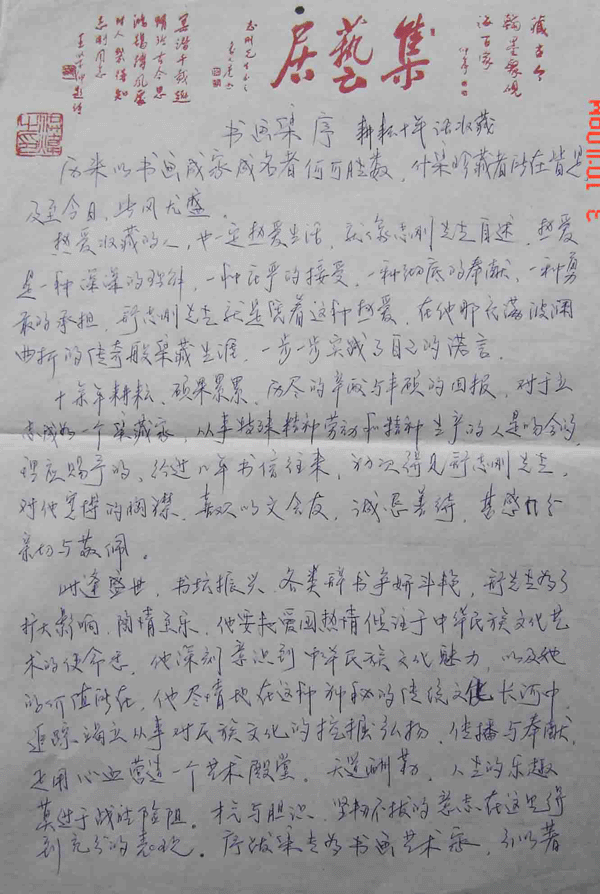 集藝居
藏古今
翰墨聚硯
书画集序 耕耘十年话收藏
历来以书画成家成名者何可胜数,什集珍藏者所在皆是
及至今日,此风尤盛。
热爱收藏的人,也一定热爱生活,就像志刚先生自述,热爱
是一种深深的理解,一种庄严的接受,一种彻底的奉献,一种勇
敢的承担,舒志刚先生就是凭着这种热爱,在他那充满波澜
曲折的传奇般集藏生涯,一步一步实践了自己的诺言。
十余年耕耘,硕果累累,历尽的辛酸与丰硕的回报,对于立
志成为一个集藏家,从事特殊精神劳动和精神生产的人是吻合的,
理应赐予的,经过几年书信往来,初次得见舒志刚先生,
对他宽博的胸襟,喜欢以文会友,诚恳善待,甚感十分
亲切与敬佩。
此逢盛世,书坛振兴,各类辞书争妍斗艳,舒先生为了
扩大影响,陶情至乐,他要把爱国热情倾注于中华民族文化艺
术的使命感,他深刻意识到中华民族文化魅力,以及她
的价值所在,他尽情地在这种神秘的传统文化长河中,
追踪 从事对民族文化的挖掘弘扬,传播与奉献,
是用心血营造一个艺术殿堂,天道酬勤,人生的乐趣
莫过于战胜险阻。才气与胆识,坚韧不拔的意志在这里得
到充分的表现。序跋集先为书画艺术家,
3